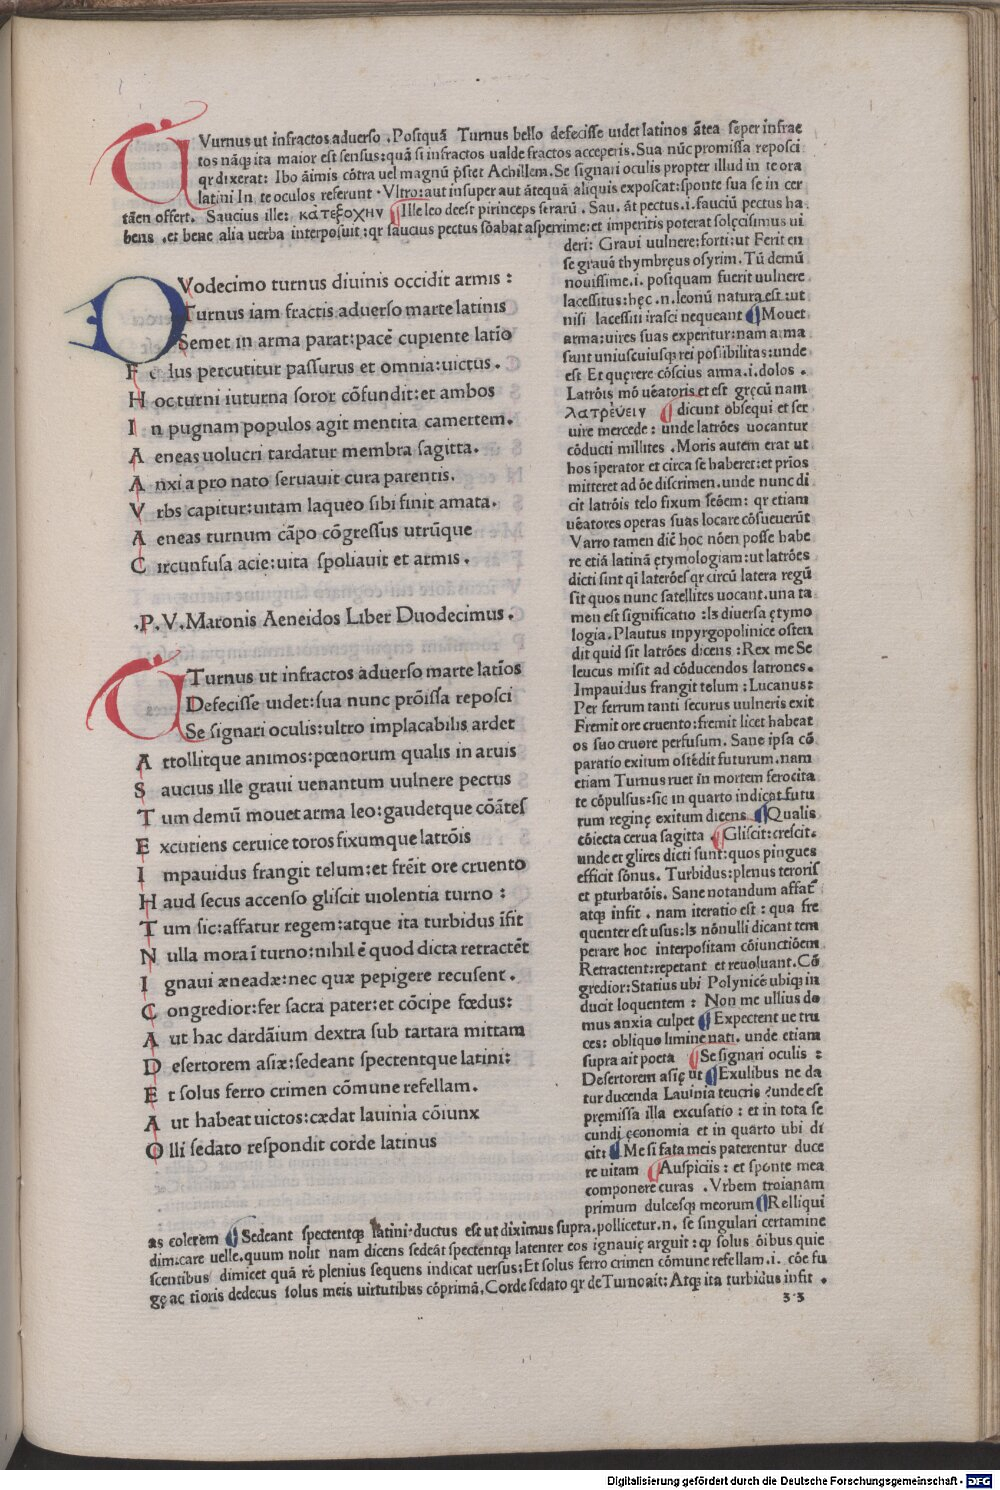 TVurnus ut infractos aduerso . Postquā Turnus bello defecisse uidet latinos ātea sēper infrac
tos nāqȝ ita maior est sensus:quā si infractos ualde fractos acceperis. Sua nūc promissa reposci
qr dixerat: Ibo āimis cōtra uel magnū pstet Achillem. Se signari oculis propter illud in te ora
latini In te oculos referunt . Vltro:aut insuper aut āteqȝuā aliquis exposcat:sponte sua se in cer
tāen offert. Saucius ille: κατεξοχην Ille leo deest pirinceps ferarū . Sau. āt pectus.i.fauciū pectus ha
bens .et bene alia uerba interposuit:qr saucius pectus sōabat asperrime:et imperitis poterat solęcismus ui
deri: Graui uulnere:forti:ut Ferit en
se grauē thymbręus osyrim. Tū demū
nouissime.i. postquam fuerit uulnere
lacessitus:hęc .n.leonū natura est:ut
nisi lacessiti irasci nequeant Mouet
arma:uires suas experitur:nam arma
sunt uniuscuiusqȝ rei possibilitas:unde
est Et quęrere cōscius arma.i.dolos .
Latrōis mō uēatoris et est gręcū nam
λατρεύειν dicunt obsequi et ser
uire mercede : unde latrōes uocantur
cōducti milites . Moris autem erat ut
hos īperator et circa se haberet:et prios
mitteret ad ōe discrimen. unde nunc di
cit latrōis telo fixum leōem: qr etiam
uēatores operas suas locare cōsueuerūt
Varro tamen dic̄ hoc nōen posse habe
re etiā latinā ętymologiam:ut latrōes
dicti sunt qī laterōes qr circū latera regū
sit quos nunc satellites uocant.una ta
men est significatio :lȝ diuersa ętymo
logia. Plautus inpyrgopolinice osten
dit quid sit latrōes dicens : Rex me Se
leucus misit ad cōducendos latrones.
Impauidus frangit telum : Lucanus:
Per ferrum tanti securus uulneris exit
Fremit ore cruento:fremit licet habeat
os suo cruore perfusum. Sane ipsa cō
paratio exitum ostēdit futurum.nam
etiam Turnus ruet in mortem ferocita
te cōpulsus:sic in quarto indicat futu
rum reginę exitum dicens Qualis
cōiecta cerua sagitta . Gliscit:crescit.
unde et glires dicti sunt:quos pingues
efficit sōnus. Turbidus:plenus teroris
et pturbatōis. Sane notandum affat̄
atqȝ infit . nam iteratio est : qua fre
quenter est usus:lȝ nōnulli dicant tem
perare hoc interpositam cōiunctiōem
Retractent:repetant et reuoluant. Cō
gredior:Statius ubi Polynicē ubiqȝ in
ducit loquentem : Non me ullius do
mus anxia culpet Expectent ue tru
ces: obliquo limine nati. unde etiam
supra ait poeta Se signari oculis :
Desertorem asię ut Exulibus ne da
tur ducenda Lauinia teucris ?unde est
pręmissa illa excusatio : et in tota se
cundi ęconomia et in quarto ubi di
cit: Me si fata meis paterentur duce
re uitam Auspiciis : et sponte mea
componere curas . Vrbem troianam
primum dulcesqȝ meorum Relliqui
as colerem Sedeant spectentqȝ latini.ductus est ut diximus supra.pollicetur.n. se singulari certamine
dimicare uelle.quum nolit nam dicens sedeāt spectentqȝ latenter eos ignauię arguit : qȝ solus ōibus quie
scentibus dimicet quā rē plenius sequens indicat uersus:Et solus ferro crimen cōmune refellam.i. cōe fu
gę ac tīoris dedecus solus meis uirtutibus cōprimā. Corde sedato qr de Turno ait: Atqȝ ita turbidus infit .
DVodecimo turnus diuinis occidit armis :
Turnus iam fractis aduerso marte latinis
Semet in arma parat:pacē cupiente latīo
F e lus percutitur passurus et omnia:uictus .
H oc turni iuturna soror cōfundit:et ambos
I n pugnam populos agit mentita camertem.
A eneas uolucri tardatur membra sagitta.
A nxia pro nato seruauit cura parentis.
V rbs capitur:uitam laqueo sibi finit amata.
A eneas turnum cāpo cōgressus utrūque
C ircunfusa acie:uita spoliauit et armis .
.P. V. Maronis Aeneidos Liber Duodecimus .
TTurnus ut infractos aduerso marte latīos
Defecisse uidet:sua nunc prōissa reposci
Se signari oculis:ultro implacabilis ardet
A ttollitque animos:pœnorum qualis in aruis
S aucius ille graui uenantum uulnere pectus
T um demū mouet arma leo:gaudetque cōātes
E xcutiens ceruice toros fixumque latrōis
I mpauidus frangit telum:et frēit ore cruento
H aud secus accenso gliscit uiolentia turno :
T um sic:affatur regem:atque ita turbidus īfit
N ulla mora ī turno:nihil ē quod dicta retractēt
I gnaui æneadæ:nec quæ pepigere recusent .
C ongredior:fer sacra pater:et cōcipe fœdus:
A ut hac dardāium dextra sub tartara mittam
D esertorem asiæ:sedeant spectentque latini:
E t solus ferro crimen cōmune refellam.
A ut habeat uictos:cædat lauinia cōiunx
O lli sedato respondit corde latinus
3·3
Digitalisierung gefördert durch die Deutsche Forschungsgemeinschaft - DFG